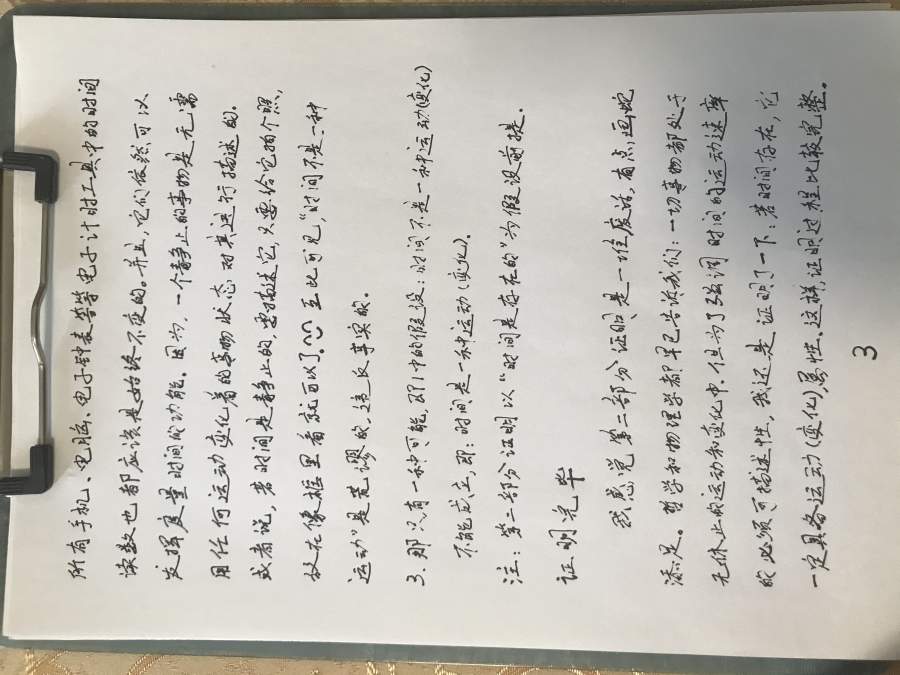 所有手机、电脑、电子钟表等电子计时工具中的时间
读数也都应该是始终不变的。并且,它们依然可以
发挥度量时间的功能。因为,一个静止的事物是无需
用任何运动变化着的事物状态对其进行描述的.
或者说,若时间是静止的,要描述它,只要给它拍个照,
放在像框里看就可以了。至此可见,“时间不是一种
运动”是荒谬的,违反事实的.
3. 那只有一种可能,即1中的假设:时间不是一种运动(变化)
不能成立,即:时间是一种运动(变化).
注:第二部分证明以“时间是存在的”为假设前提.
证明完毕
我感觉第二部分证明是一堆废话,有点画蛇
添足。哲学和物理学都早已告诉我们:一切事物都处于
无休止的运动和变化中.但为了强调时间的运动速率
的必须可描述性,我还是证明了一下:若时间存在,它
一定具备运动(变化)属性.这样,证明过程比较完整。
3